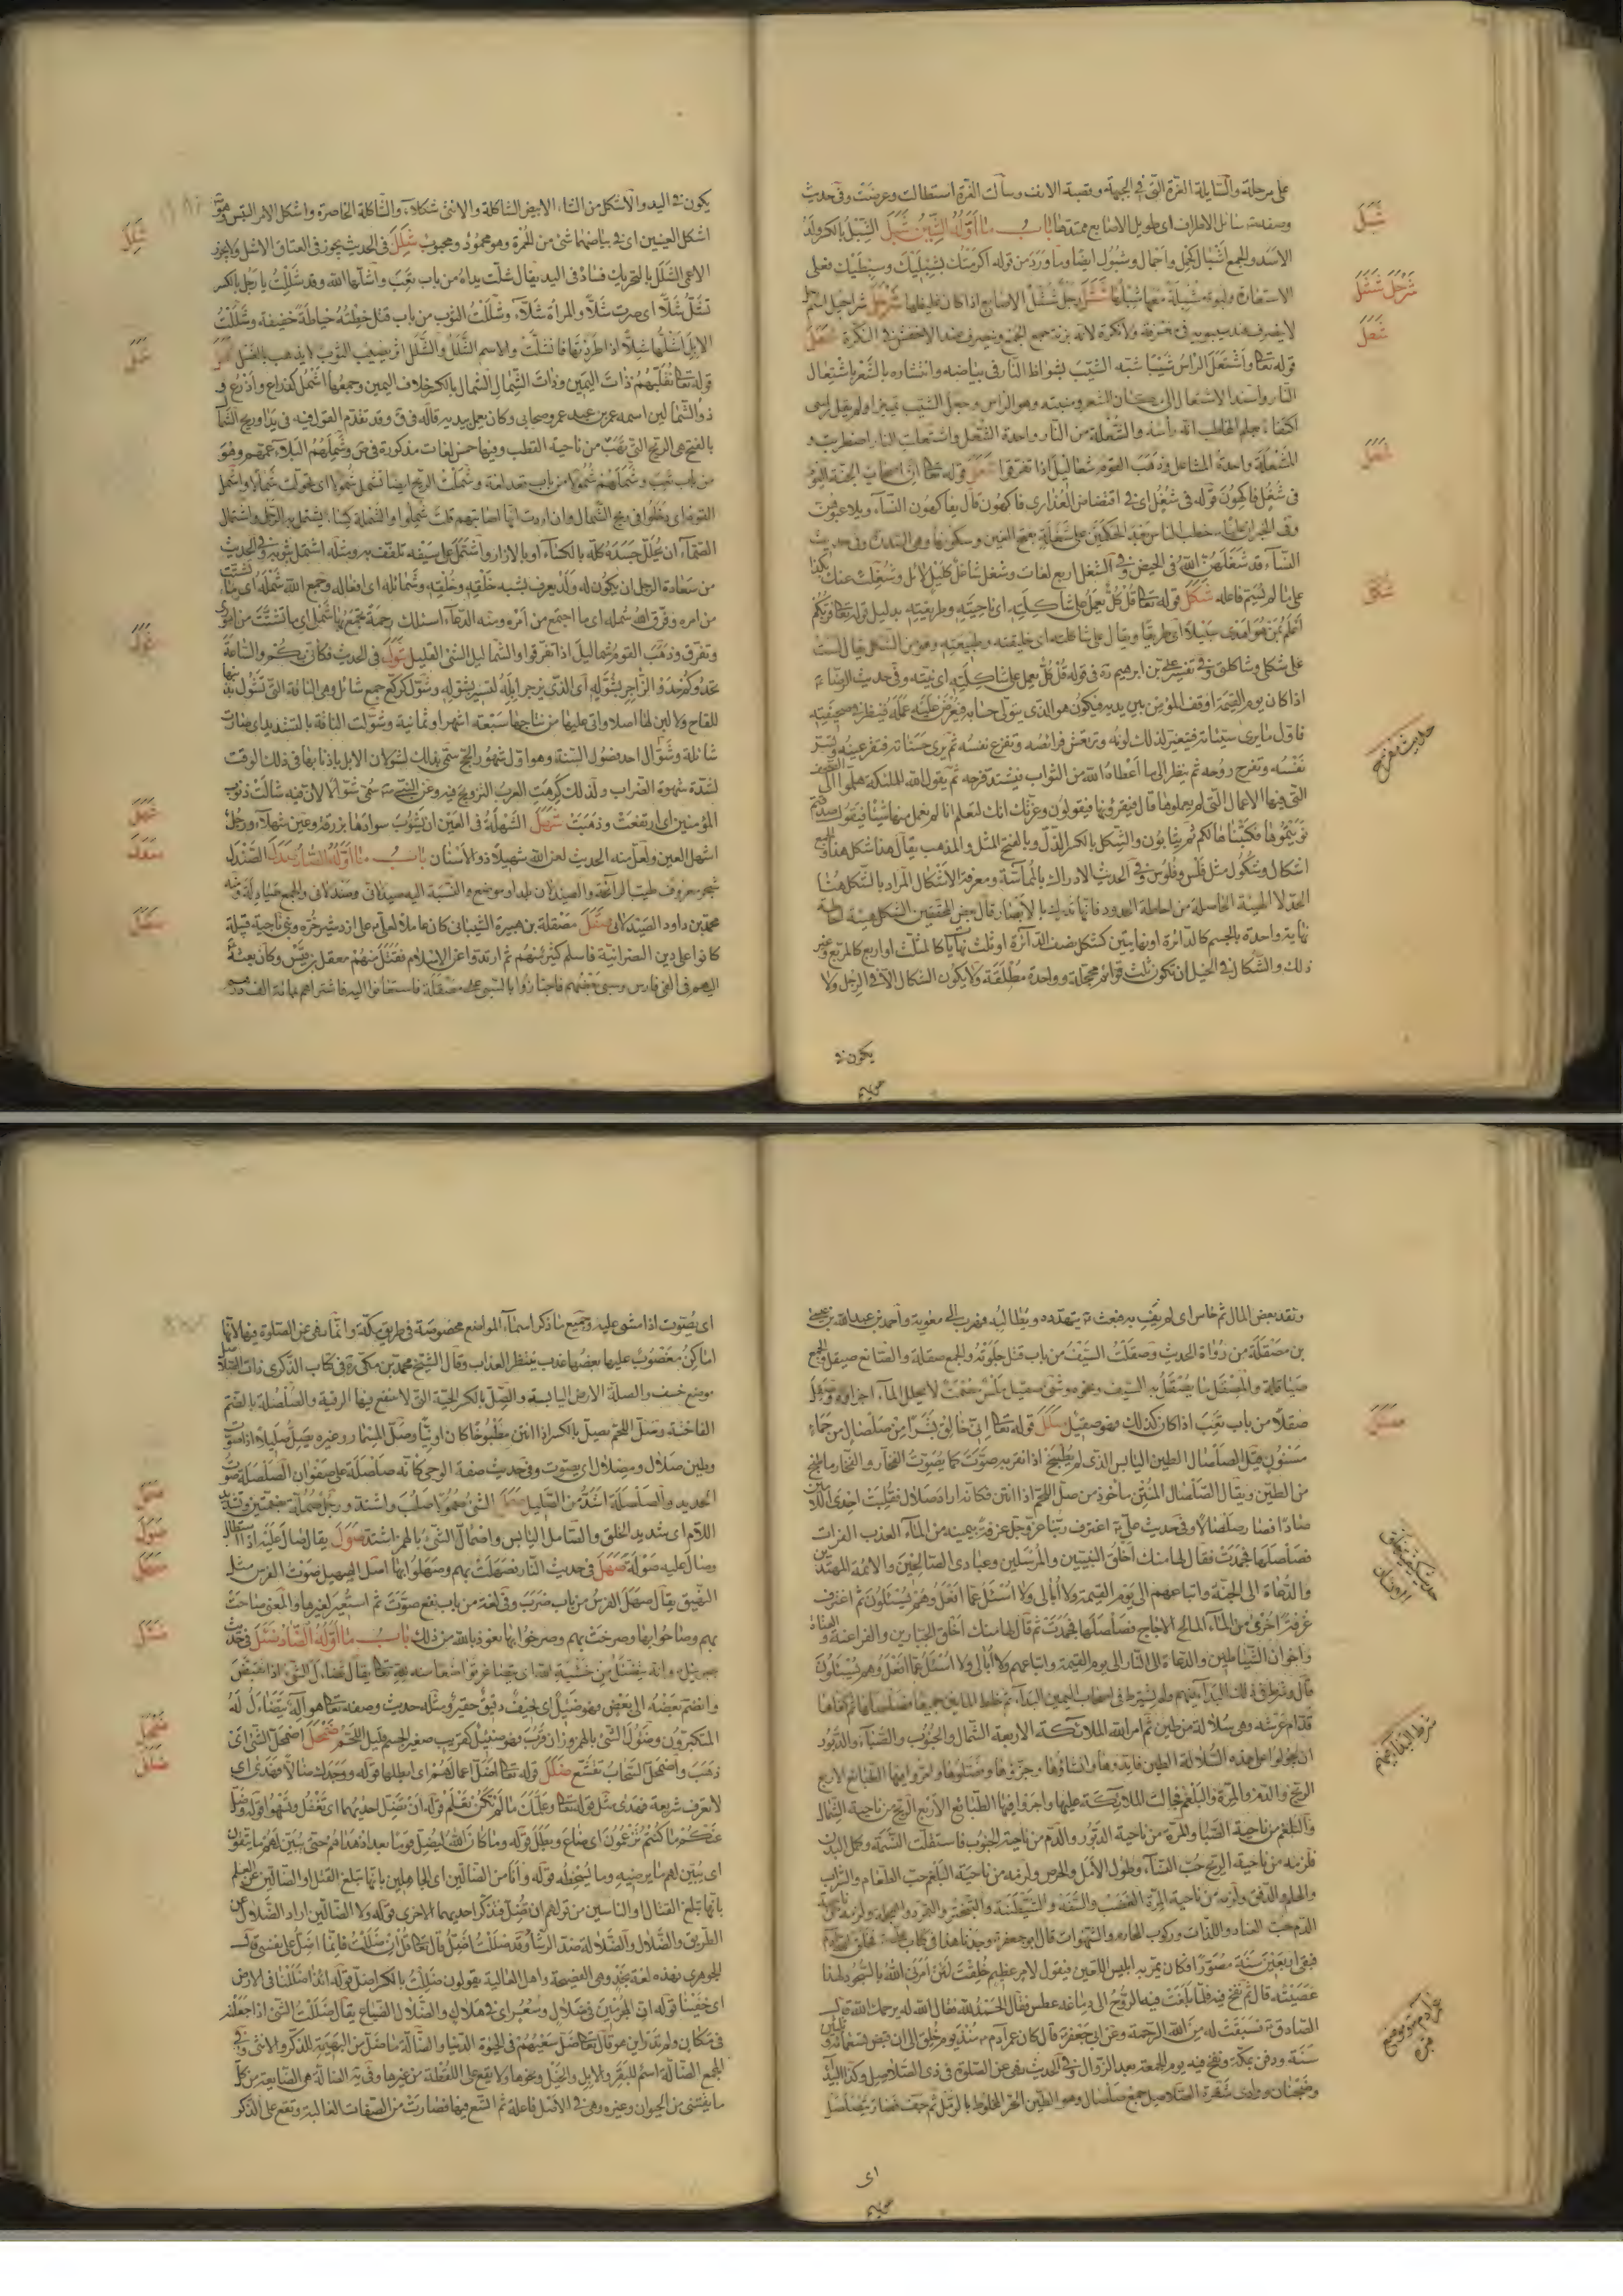 على مرحلة والسايلة الغرة التي في الجبهة وقصبة الانف وسالت الغرة استطالت وعرضت وفي حديث
وصفه سائل الاطراف اى طويل الاصابع ممتدها باب ما اوله الشين شبل الشبل بالكسر ولد
الاسد والجمع اشبال كحمل واحمال وشبول ايضا وما ورد من قوله
الاستعارة ولبوة مشبلة معها شبلها شثل رجل شثل الاصابع اذا كان غليظها شرحل شراحيل اسم
لا ينصرف عند سيبويه في معرفة ولا نكرة لانه بزنة جمع الجمع وينصرف عند الاخفش في النكرة شعل
قوله تعالى واشتعل الراس شيبا شبه الشيب بشواظ النار في بياضه وانتشاره بالشعر باشتعال
النار واسند الاشتعال الى مكان الشعر ومنبته وهو الراس وجعل الشيب تمييزا ولم يقل راسى
اكتفاء بعلم المخاطب انه راسه والشعلة من النار واحدة الشعل واشتعلت النار اضطربت و
المشعلة واحدة المشاعل وذهب القوم شعاليل اذا تفرقوا شغل قوله تعالى ان اصحاب الجنة اليوم
في شغل فاكهون قوله في شغل اى في افتضاض العذارى فاكهون قال يفاكهون النساء ويلاعبوهن
النساء قد شغلهن الله في الحيض وفي الشغل اربع لغات وشغل شاغل كليل لائل وشغلت عنك بكذا
على ما لم يسم فاعله شكل قوله تعالى قل كل يعمل على شاكلته اى ناحيته وطريقته بدليل قوله تعالى فربكم
اعلم بمن هو اهدى سبيلا اى طريقا ويقال على شاكلته اى خليقته وطبيعته وهو من الشكل يقال لست
على شكلى وشاكلتى وفي تفسير على بن ابرهيم ره في قوله قل كل يعمل على شاكلته اى نيته وفي حديث الرضا ع
اذا كان يوم القيمة اوقف المؤمن بين يديه فيكون هو الذى يتولى حسابه فيعرض عليه عمله فينظر في صحيفته
فاول ما يرى سيئاته فيتغير لذلك لونه وترتعش فرائصه وتفزع نفسه ثم يرى حسناته فتقر عينه وتسر
نفسه وتفرح روحه ثم ينظر الى ما اعطاه الله من الثواب فيشتد فرحه ثم يقول الله للملئكة هلموا الى الصحف
التي فيها الاعمال التي لم يعملوها قال فيقرؤنها فيقولون وعزتك انك لتعلم انا لم نعمل منها شيئا فيقول صدقتم
نويتموها فكتبناها لكم ثم يثابون والشكل بالكسر الدل وبالفتح المثل والمذهب يقال هذا شكل هذا والجمع
اشكال وشكول مثل فلس وفلوس وفي حديث الادراك بالمماسة ومعرفة الاشكال المراد بالشكل هنا
نهاية واحدة بالجسم كالدائرة او نهايتين كشكل نصف الدائرة او ثلث نهايا كالمثلث او اربع كالمربع وغير
ذلك والشكال في الخيل ان تكون ثلث قوائم محجلة وواحدة مطلقة ولا يكون الشكال الا في الرجل ولا
يكون في
شبل
شرحل شثل
شعل
شغل
شكل
حديث مفرح
يكون في اليد والاشكل من الشاء الابيض الشاكلة والانثى شكلاء والشاكلة الخاصرة واشكل الامر التبس وهو
اشكل العينين اى في بياضهما شئ من الحمرة وهو محمود ومحبوب شلل في الحديث يجوز في العتاق الاشل ولا يجوز
الاعمى الشلل بالتحريك فساد في اليد يقال شلت يداه من باب تعب واشلها الله وقد شللت يا رجل بالكسر
تشل شللا اى صرت شلا والمراة شلاء وشللت الثوب من باب قتل خطته خياطة خفيفة وشللت
الابل اشلها شلا اذا طردتها فانشلت والاسم الشلل والشلل اثر يصيب الثوب لا يذهب بالغسل شمل
قوله تعالى نقلبهم ذات اليمين وذات الشمال الشمال بالكسر خلاف اليمين وجمعها اشمل كذراع واذرع و
بالفتح هى الريح التي تهب من ناحية القطب وفيها خمس لغات مذكورة في ص وشملهم البلاء عمهم وهو
من باب تعب وشملهم شمولا من باب قعد لغة وشملت الريح ايضا تشمل شمولا اى تحولت شمالا واشمل
القوم اى دخلوا في ريح الشمال وان اردت انها اصابتهم قلت شملوا والشملة كساء يشتمل به الرجل واشتمال
الصماء ان يجلل جسده كله بالكساء او بالازار واشتمل على سيفه تلفف به ومثله اشتمل بثوبه وفي الحديث
من سعادة الرجل ان يكون له ولد يعرف بشبه خلقه وخلقه وشمائله اى افعاله وجمع الله شملهم اى ما تشتت
من امره وفرق الله شمله اى ما اجتمع من امره ومنه الدعاء اسئلك رحمة تجمع بها شملى اى ما تشتت من امورى
وتفرق وذهب القوم شماليل اذا تفرقوا والشماليل الشئ القليل شول في الحديث فكانى بكم والساعة
تحدوكم حدو الزاجر بشوله اى الذى يزجر ابله لتسير بشوله وشول كركع جمع شائل وهى الناقة التي تشول بذنبها
للقاح ولا لبن لها اصلا واتى عليها من نتاجها سبعة اشهر او ثمانية وشولت الناقة بالتشديد اى صارت
شائلة وشوال احد فصول السنة وهو اول شهور الحج سمى بذلك لشولان الابل باذنابها في ذلك الوقت
لشدة شهوة الضراب ولذلك كرهت العرب التزويج فيه وعن النبى ص سمى شوالا لان فيه شالت ذنوب
المؤمنين اى ارتفعت وذهبت شهل الشهلة في العين ان يشوب سوادها زرقة وعين شهلاء ورجل
اشهل العين ولعل منه الحديث لعن الله شهيلا ذو الاسنان باب ما اوله الصاد صندل الصندل
شجر معروف طيب الرائحة والصيدلان بلد او موضع والنسبة اليه صيدلانى وصندلانى والجمع صيادلة ومنه
محمد بن داود الصيدلانى صقل مصقلة بن هبيرة الشيبانى كان عاملا لعلى ع على اردشير خره وبنى ناجية قبيلة
كانوا على دين النصرانية فاسلم كثير منهم ثم ارتدوا عن الاسلام فقتل منهم معقل بن قيس وكان بعثه
اليهم في الفى فارس وسبى بعضهم فاجتازوا بالسبى على مصقلة فاستغاثوا اليه فاشتراهم بمائة الف درهم
شكل
شمل
شول
شهل
صندل
صقل
ونقد بعض المال ثم خاس اى لم يف به فبعث ع يتهدده ويطالبه فهرب الى معوية واحمد بن عبدالله بن عيسى
بن مصقلة من رواة الحديث وصقلت السيف من باب قتل جلوته والجمع صقلة والصانع صيقل والجمع
صياقلة والمصقل ما يصقل به السيف ونحوه وشئ صقيل املس مصمت لا يخلل الماء اجزاءه وصقل
صقلا من باب تعب اذا كان كذلك فهو صقيل صلل قوله تعالى انى خالق بشرا من صلصال من حماء
مسنون قيل الصلصال الطين اليابس الذى لم يطبخ اذا نقر به صوت كما يصوت الفخار والفخار ما طبخ
من الطين ويقال الصلصال المنتن ماخوذ من صل اللحم اذا انتن فكانه اراد صلال فقلبت احدى اللامين
صادا فصار صلصالا وفي حديث على ع اغترف ربنا عز وجل غرفة بيمينه من الماء العذب الفرات
فصلصلها فجمدت فقال لها منك اخلق النبيين والمرسلين وعبادى الصالحين والائمة المهتدين
والدعاة الى الجنة واتباعهم الى يوم القيمة ولا ابالى ولا اسئل عما افعل وهم يسئلون ثم اغترف
غرفة اخرى من الماء المالح الاجاج فصلصلها فجمدت ثم قال لها منك اخلق الجبارين والفراعنة والعتاة
واخوان الشياطين والدعاة الى النار الى يوم القيمة واتباعهم ولا ابالى ولا اسئل عما افعل وهم يسئلون
قال وشرط في ذلك البداء فيهم ولم يشترط في اصحاب اليمين البداء ثم خلط المائين جميعا فصلصلهما ثم كفاهما
قدام عرشه وهى سلالة من طين ثم امر الله الملائكة الاربعة الشمال والجنوب والصباء والدبور
ان يجولوا على هذه السلالة الطين فابدوها وانشاؤها وجزوها وفصلوها واجروا فيها الطبائع الاربع
الريح والدم والمرة والبلغم فجالت الملائكة عليها واجروا فيها الطبائع الاربع الريح من ناحية الشمال
والبلغم من ناحية الصبا والمرة من ناحية الدبور والدم من ناحية الجنوب فاستقلت النسمة وكمل البدن
فلزمه من ناحية الريح حب النساء وطول الامل والحرص ولزمه من ناحية البلغم حب الطعام والشراب
والحلم والرفق ولزمه من ناحية المرة الغضب والسفه والشيطنة والتجبر والتمرد والعجلة ولزمه من ناحية
الدم حب الفساد واللذات وركوب المحارم والشهوات قال ابو جعفر ع وجدنا هذا في كتاب على ع فخلق الله ادم
فبقى اربعين سنة مصورا فكان يمر به ابليس اللعين فيقول لامر عظيم خلقت لئن امرنى الله بالسجود لهذا
عصيته قال ثم نفخ فيه فلما بلغت فيه الروح الى دماغه عطس فقال الحمدلله فقال الله له يرحمك الله قال
الصادق ع فسبقت له من الله الرحمة وعن ابى جعفر ع قال كان عمر ادم ع منذ يوم خلق الى ان قبض تسعمائة وثلثين
سنة ودفن بمكة ونفخ فيه يوم الجمعة بعد الزوال وفي الحديث نهى عن الصلوة في ذى الصلاصل وكذا البيداء
وضجنان ووادى شقرة الصلاصل جمع صلصال وهو الطين الحر المخلوط بالرمل ثم جف فصار يتصلصل
اى
صلل
شرط البداء فيهم
اى يصوت اذا مشى عليه وجميع ما ذكر اسماء المواضع مخصوصة في طريق مكة وانما نهى عن الصلوة فيها لانها
اماكن مغضوب عليها بعضها عذب وبعضها ينتظر العذاب وقال الشيخ محمد بن مكى ره في كتاب الذكرى ذات الصلاصل
موضع خسف والصلة الارض اليابسة والصل بالكسر الحية التي لا تنفع فيها الرقية والصلصلة بالضم
الفاختة وصل اللحم يصل بالكسر اذا انتن مطبوخا كان او نيا وصل المسمار وغيره يصل صليلا اذا صوت
وطين صلال ومصلال اى يصوت وفي حديث صفة الوحى كانه صلصلة على صفوان الصلصلة صوت
الحديد والصلصلة اشد من الصليل صمل الشئ صمولا صلب واشتد ورجل صمل بضمتين وتشديد
اللام اى شديد الخلق والصامل اليابس واصمال الشئ بالهمز اشتد صول يقال صال عليه اذا استطال
وصال عليه صولة صهل في حديث النار فصهلت بهم وصهلوا بها اصل الصهيل صوت الفرس مثل
النهيق يقال صهل الفرس من باب ضرب وفي لغة من باب نفع صوت ثم استعير لغيرها والمعنى صاحت
بهم وصاحوا بها وصرخت بهم وصرخوا بها نعوذ بالله من ذلك باب ما اوله الضاد ضئل في حديث
جبرئيل وانه ليتضائل من خشية الله اى يتصاغر تواضعا منه لله تعالى يقال تضاءل الشئ اذا انقبض
وانضم بعضه الى بعض فهو ضئيل اى نحيف دقيق حقير ومثله حديث وصفه تعالى هو اله يتضاءل له
المتكبرون وضؤل الشئ بالهمز وزان قرب فهو ضئيل كقريب صغير الجسم قليل اللحم ضحل اضمحل الشئ اى
ذهب واضمحل السحاب تقشع ضلل قوله تعالى اضل اعمالهم اى ابطلها قوله ووجدك ضالا فهدى اى
لا تعرف شريعة فهدى مثل قوله تعالى وعلمك ما لم تكن تعلم قوله ان تضل احديهما اى تغفل وتسهوا قوله وضل
عنكم ما كنتم تزعمون اى ضاع وبطل قوله وما كان الله ليضل قوما بعد اذ هداهم حتى يبين لهم ما يتقون
اى يبين لهم ما يرضيه وما يسخطه قوله وانا من الضالين اى الجاهلين بانها تبلغ القتل او الضالين عن العلم
بانها تبلغ القتال والناسين من قولهم ان تضل فتذكر احديهما الاخرى قوله ولا الضالين اراد الضلال عن
الطريق والضلال والضلالة ضد الرشاد وقد ضللت اضل قال تعالى قل ان ضللت فانما اضل على نفسى قال
الجوهرى فهذه لغة نجد وهى الفصيحة واهل العالية يقولون ضللت بالكسر اضل قوله ائذا ضللنا في الارض
اى خفينا قوله ان المجرمين في ضلال وسعر اى في هلاك والضلال الضياع يقال ضللت الشئ اذا جعلته
في مكان ولم تدر اين هو قال تعالى ضل سعيهم في الحيوة الدنيا والضالة ما ضل من البهيمة للذكر والانثى وفي
المجمع الضالة اسم للبقر والابل والخيل ونحوها ولا يقع على اللقطة من غيرها وفي ية الضالة هى الضايعة من كل
ما يقتنى من الحيوان وغيره وهى في الاصل فاعلة ثم اتسع فيها فصارت من الصفات الغالبة وتقع على الذكر
صمل
صول
صهل
ضئل
ضحل
ضلل